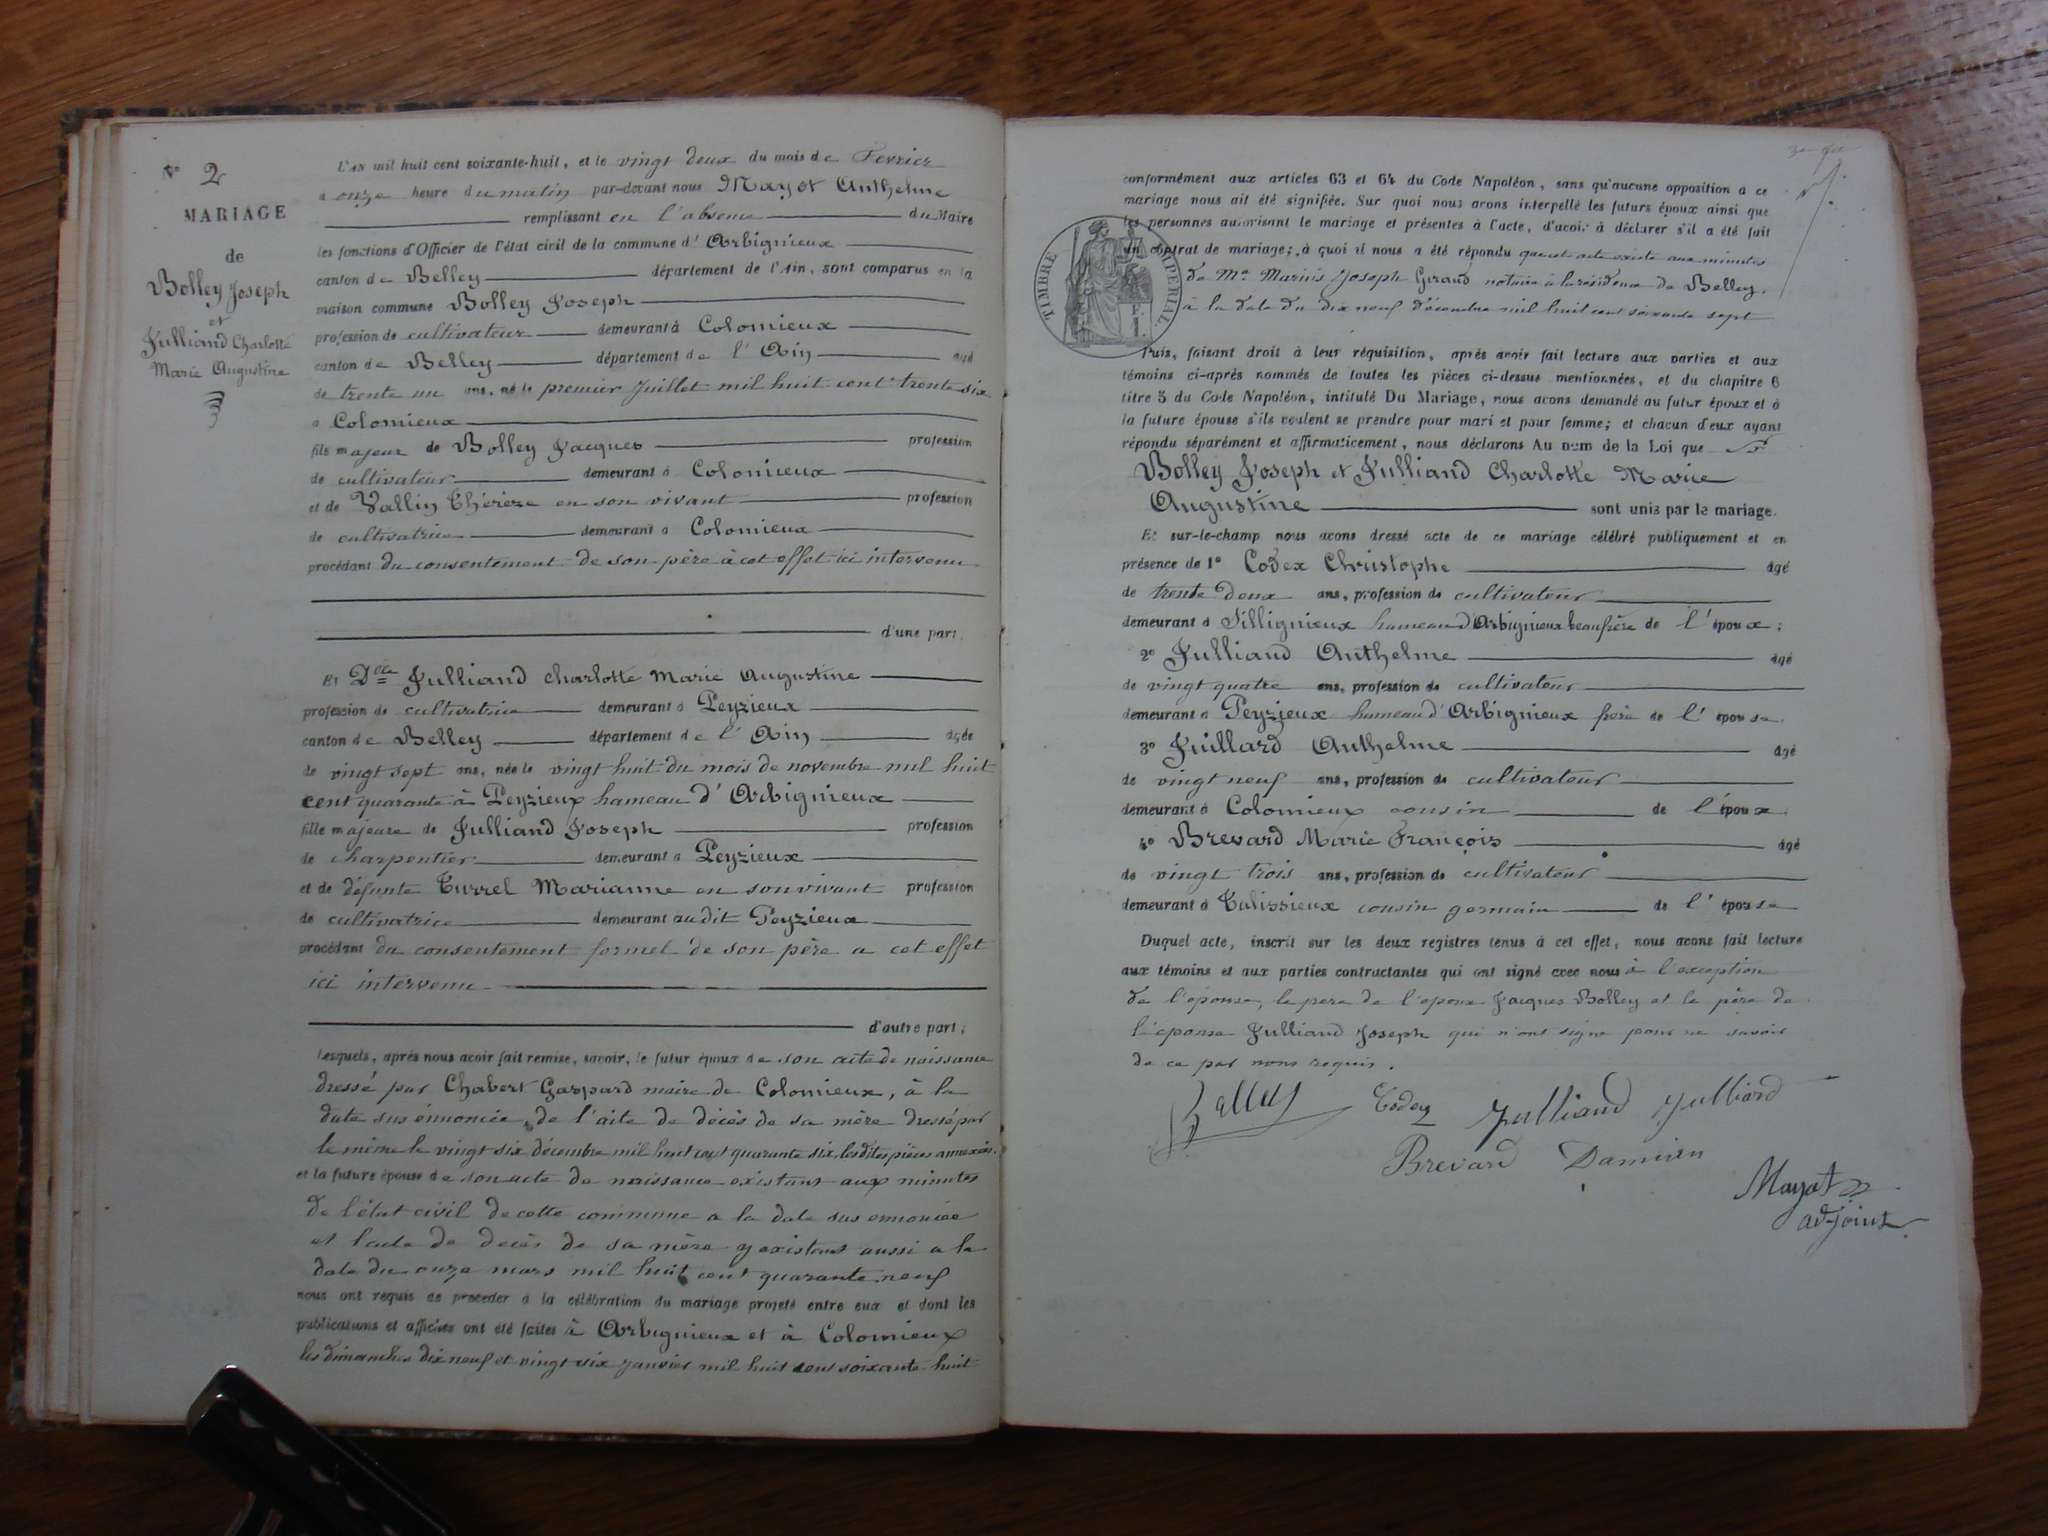 N° 2
MARIAGE
de
Bolley Joseph
et
Julliand Charlotte
Marie Augustine
L'AN mil huit cent soixante-huit, et le vingt deux du mois de Fevrier
a onze heure du matin par-devant nous Mayot Anthelme
remplissant en l'absence du Maire
les fonctions d'Officier de l'état civil de la commune d' Arbignieux
canton de Belley département de l'Ain, sont comparus en la
maison commune Bolley Joseph
profession de cultivateur demeurant à Colomieux
canton de Belley département de l'Ain agé
de trente un ans, né le premier Juillet mil huit cent trente six
a Colomieux
fils majeur de Bolley Jacques profession
de cultivateur demeurant à Colomieux
et de Vallin Thérèze en son vivant profession
de cultivatrice demeurant a Colomieux
procédant du consentement de son père à cet effet ici intervenu
d'une part;
Et Delle Julliand Charlotte Marie Augustine
profession de cultivatrice demeurant à Peyzieux
canton de Belley département de l'Ain agée
de vingt sept ans, née le vingt huit du mois de novembre mil huit
cent quarante à Peyzieux hameau d'Arbignieux
fille majeure de Julliand Joseph profession
de charpentier demeurant à Peyzieux
et de défunte Turrel Marianne en son vivant profession
de cultivatrice demeurant audit Peyzieux
procédant du consentement formel de son père a cet effet
ici intervenu
d'autre part;
lesquels, après nous avoir fait remise, savoir, le futur époux de son acte de naissance
dressé par Chabert Gaspard maire de Colomieux, à la
date sus énnoncée, de l'aite de décès de sa mère dressé par
le même le vingt six décembre mil huit cent quarante six, lesdites pièces annexées.
et la future épouse de son acte de naissance existant aux minutes
de l'état civil de cette commune a la date sus ennoncée
et l'acte de décès de sa mère y existant aussi a la
date du onze mars mil huit cent quarante neuf
nous ont requis de proceder à la célébration du mariage projeté entre eux et dont les
publications et affiches ont été faites à Arbignieux et à Colomieux
les dimanches dix neuf et vingt six janvier mil huit cent soixante huit
conformément aux articles 63 et 64 du Code Napoléon, sans qu'aucune opposition a ce
mariage nous ait été signifiée. Sur quoi nous avons interpellé les futurs époux ainsi que
les personnes autorisant le mariage et présentes à l'acte, d'avoir à déclarer s'il a été fait
un contrat de mariage; à quoi il nous a été répondu que cet acte existe aux minutes
de Me Marius Joseph Girand notaire à la résidence de Belley,
à la date du dix neuf décembre mil huit cent soixante sept
TIMBRE IMPERIAL
F. 1.
Puis, faisant droit à leur réquisition, après avoir fait lecture aux parties et aux
témoins ci-après nommés de toutes les pièces ci-dessus mentionnées, et du chapitre 6
titre 5 du Code Napoléon, intitulé Du Mariage, nous avons demandé au futur époux et à
la future épouse s'ils veulent se prendre pour mari et pour femme; et chacun d'eux ayant
répondu séparément et affirmativement, nous déclarons Au nom de la Loi que
Bolley Joseph et Julliand Charlotte Marie
Augustine sont unis par le mariage.
Et sur-le-champ nous avons dressé acte de ce mariage célébré publiquement et en
présence de 1° Codex Christophe agé
de trente deux ans, profession de cultivateur
demeurant à Sillignieux hameau d'Arbignieux beaufrère de l'époux;
2° Julliand Anthelme agé
de vingt quatre ans, profession de cultivateur
demeurant à Peyzieux hameau d'Arbignieux frère de l'épouse.
3° Juillard Anthelme agé
de vingt neuf ans, profession de cultivateur
demeurant à Colomieux cousin de l'époux
4° Brevard Marie François agé
de vingt trois ans, profession de cultivateur
demeurant à Talissieux cousin germain de l'épouse
Duquel acte, inscrit sur les deux registres tenus à cet effet, nous avons fait lecture
aux témoins et aux parties contractantes qui ont signé avec nous à l'exception
de l'épouse, le pere de l'epoux Jacques Bolley et le père de
l'épouse Julliand Joseph qui n'ont signé pour ne savoir
de ce par nous requis.
Julliand Julliard
Brevard Damien
Mayot
adjoint